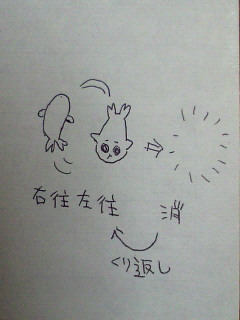 右往左往
消
くり返し